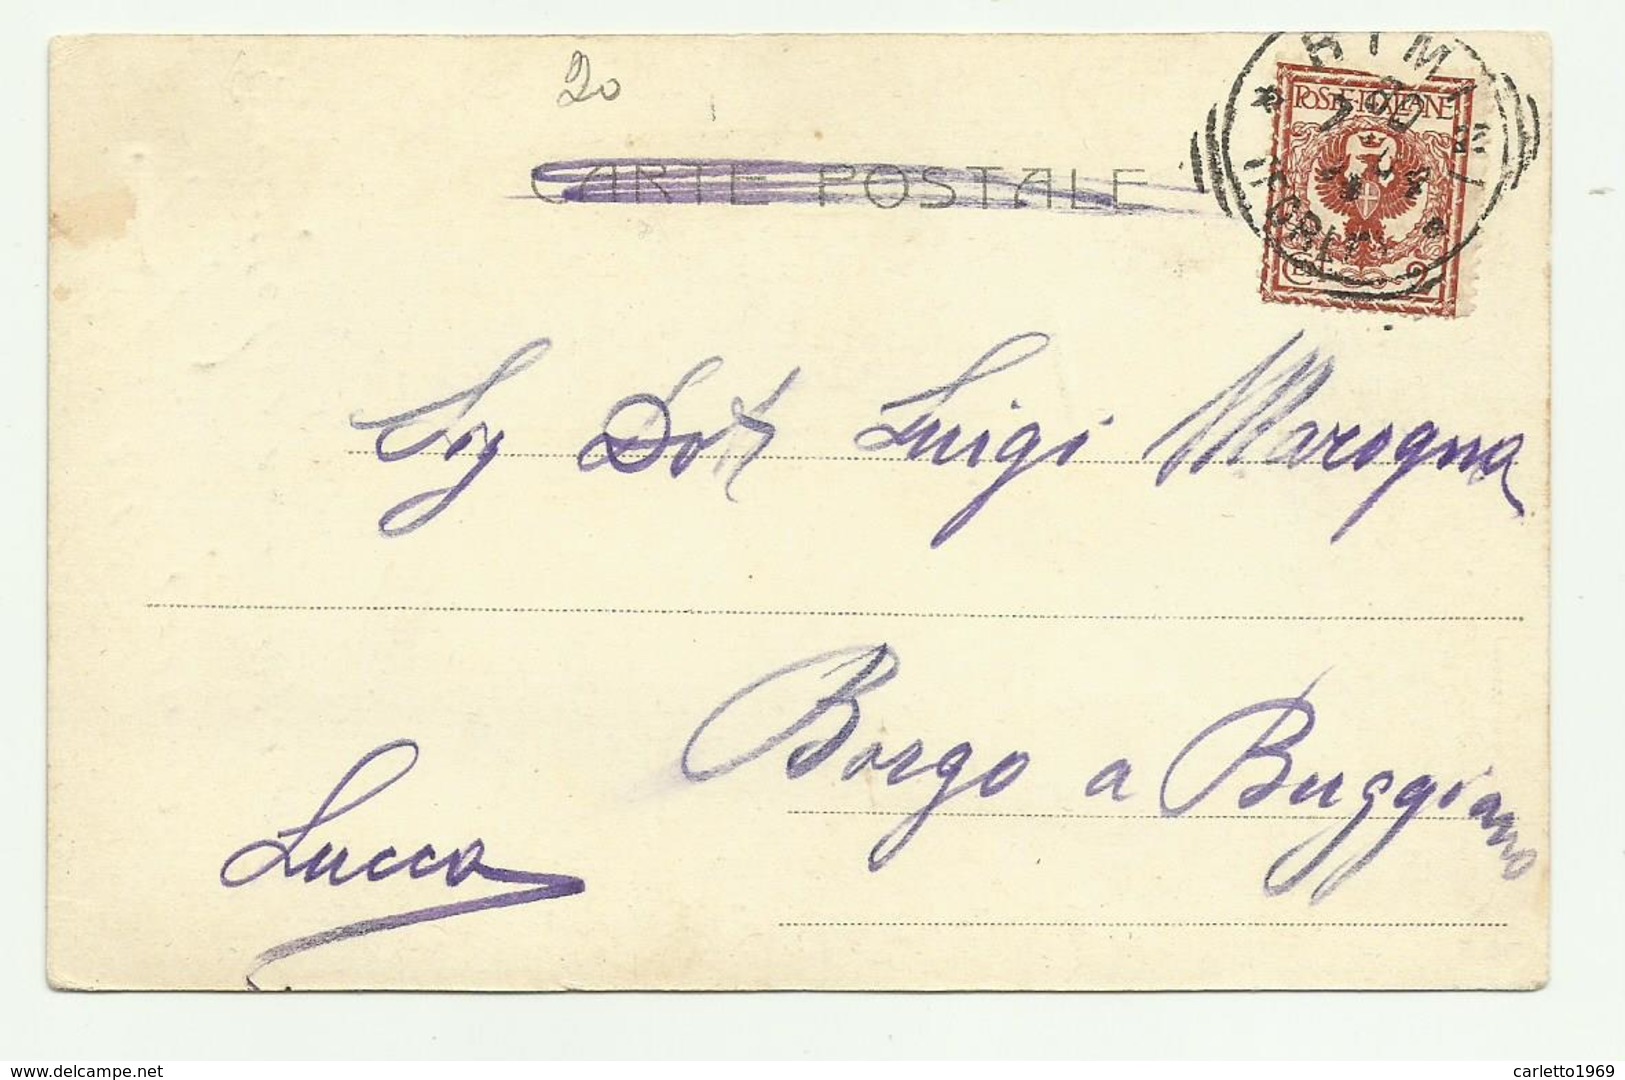 20
CARTE POSTALE
RIMINI
POSTE ITALIANE
CENT. 2
Sig Dott Luigi Marogna
Borgo a Buggiano
Lucca
www.delcampe.net
carletto1969